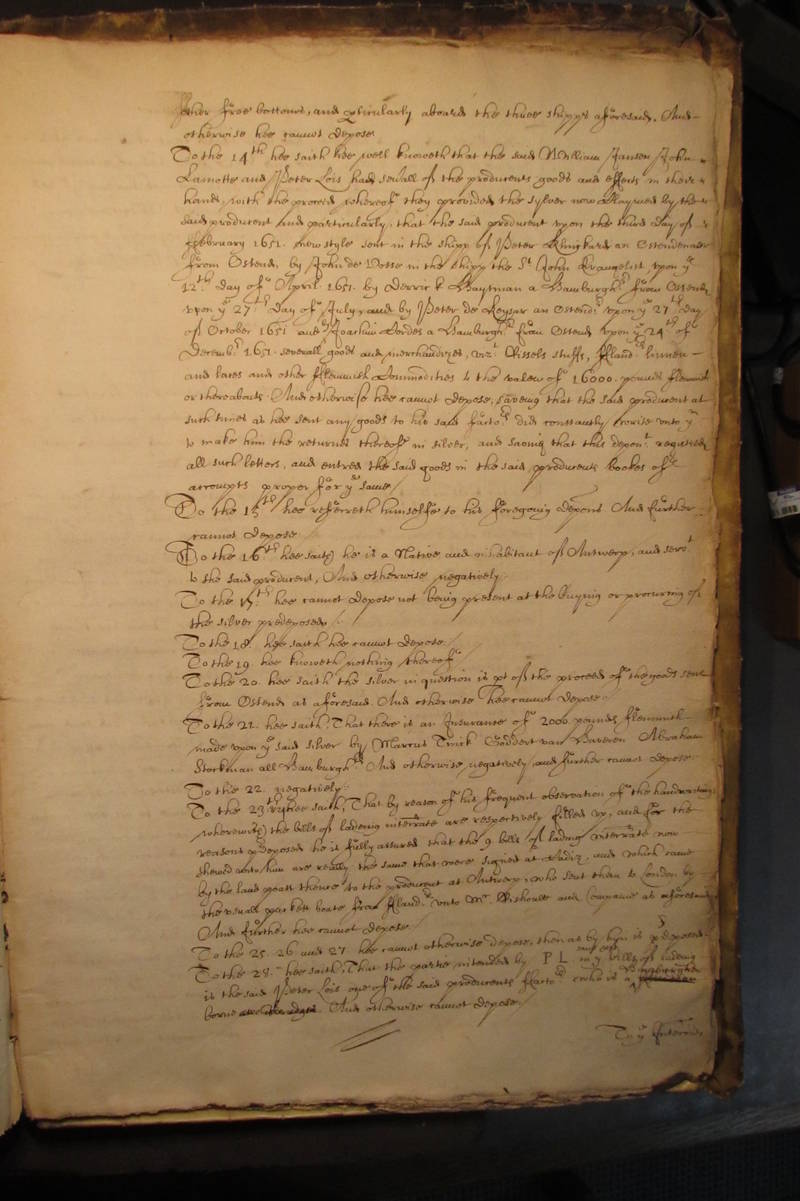 other free bottomes, and pticularly aboard the three shipps aforesaid, And
otherwise hee cannot depose
To the 14th hee saith hee well knoweth that the said William Jansen John
Lamotte and Peter Lois had seuerall of the producents goods and effects in their
hands, with the proceed whereof they provided the sylver now claymed by the
said producent and particularly, that the said producent vpon the third day of
ffebruary 1651. new style sent in the shipp of Peter an Ostendenaer
from Ostend, by John de in the shipp the St John Evangelist vpon ye
12th day of April 1651. by Derrick a Hamburgher from Ostend
vpon ye 27th day of July, and by Peter de Keysar an Ostendr vpon ye 27th day
of October 1651 and Joachim a Hamburghr from Ostend vpon ye 24th of
Decembr 1651. severall goods and merchandizes, vizt stuffs, ffland: linnen
and laces and other fflemmish Commodities to the valew of 16000 pounds flemish
or thereabouts. And otherwise hee cannot depose, saveing that the said producent at
such times as hee sent any goods to his said ffactors did constantly write vnto ym
to make him the returnes thereof in silver, and saving that this depont. registred
all such letters, and entred the said goods in the said producents bookes of
accompts proper for ye same /
To the 15th hee refferreth himselfe to his foregoing deponts And further
cannot depose
To the 16th hee saith he is a Native and inhabitant of Antwerp, and servt
to the said producent, And otherwise negatively.
To the 17th. hee cannot depose not being present at the buying or procuring of
the silver predeposed /.
To the 18. hee saith hee cannot depose /
To the 19. hee knoweth nothing thereof
To the 20. hee saith the silver in question is pt of the proceed of the goods sent
from Ostend as aforesaid. And otherwise hee cannot depose
To the 21. hee saith, That there is an Insurance of 2000 pounds flemmish
made vpon ye said silver by Marcus Goddert van Abraham
Stockman all Hamburghrs And otherwise negatively and further cannot depose
To the 22. negatively.
To the 23th hee saith, That by reason of his frequent observation of the handwriting
wherewith the bills of ladeing interrate are respectively filled vp, and for the
reasons pdeposed he is fully assured that the 9 bills of lading interrate now
shewed vnto him are really the same that were signed at Cadiz, and which came
by the land post thence to the producent at Antwerp, who sent them to London by
the vsuall packett boate from ffland: vnto Mr and Companie as aforesaid
And further hee cannot depose
To the 25. 26 and 27 hee cannot otherwise depose, then as by him is pdeposed.
To the 28. hee saith, That the partie intended by P L in ye bills of lading
is the said Peter Lois one of the said producents ffactors who is a Hamburgher
borne And otherwise cannot depose /
To ye Interries